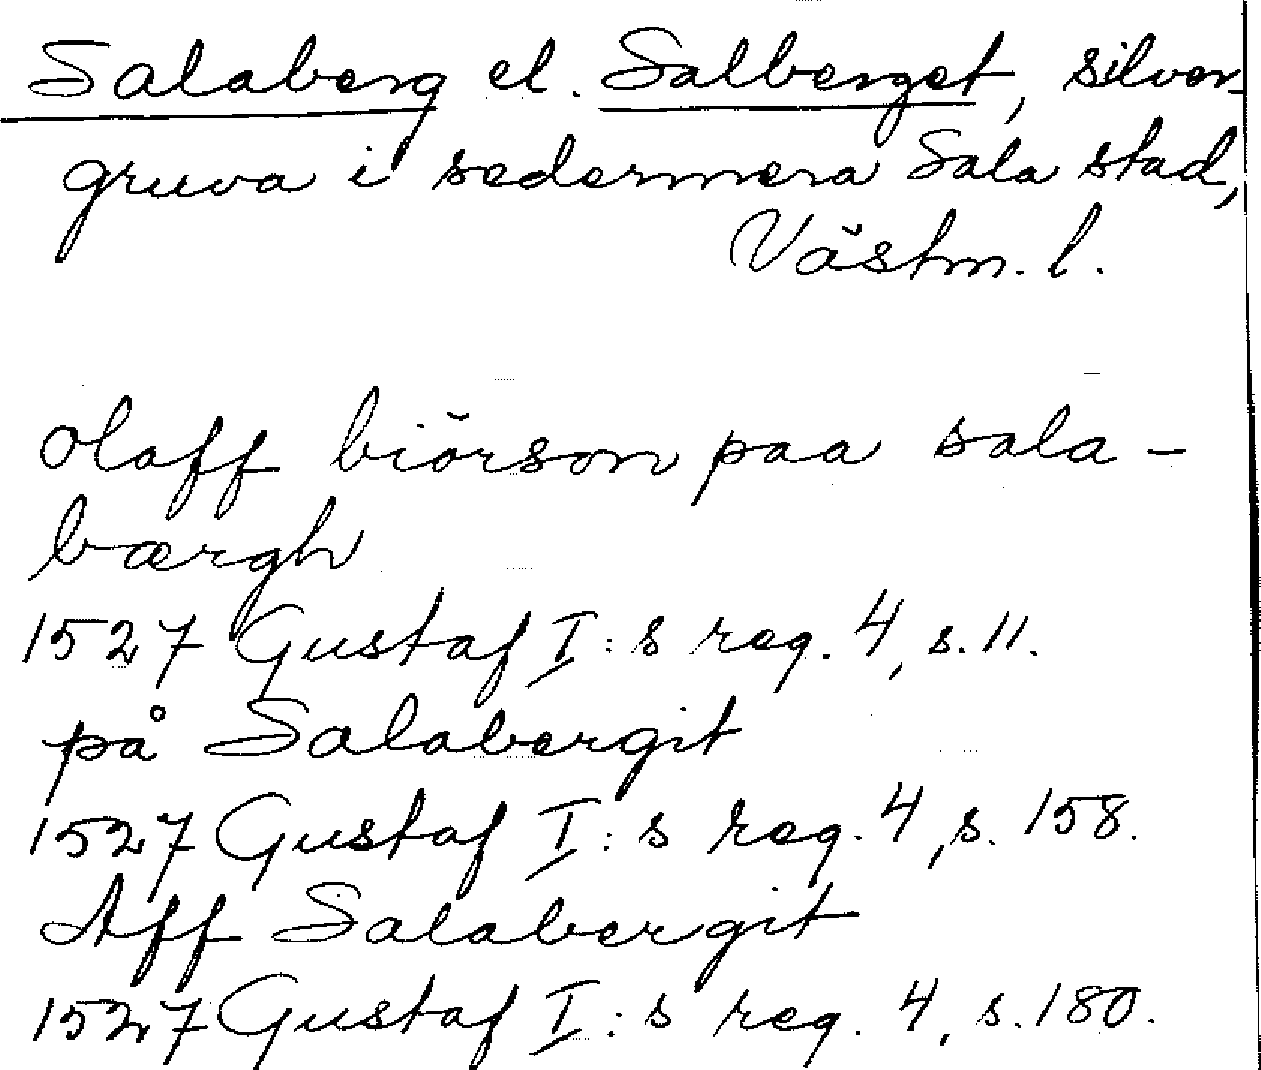 Salaberg el. Salberget, silver-
gruva i sedermera Sala stad,
Västm. l.
olaff biörson paa sala-
bærgh
1527 Gustaf I:s reg. 4, s. 11.
på Salabergit
1527 Gustaf I:s reg. 4, s. 158.
Aff Salabergit
1527 Gustaf I:s reg. 4, s. 180.